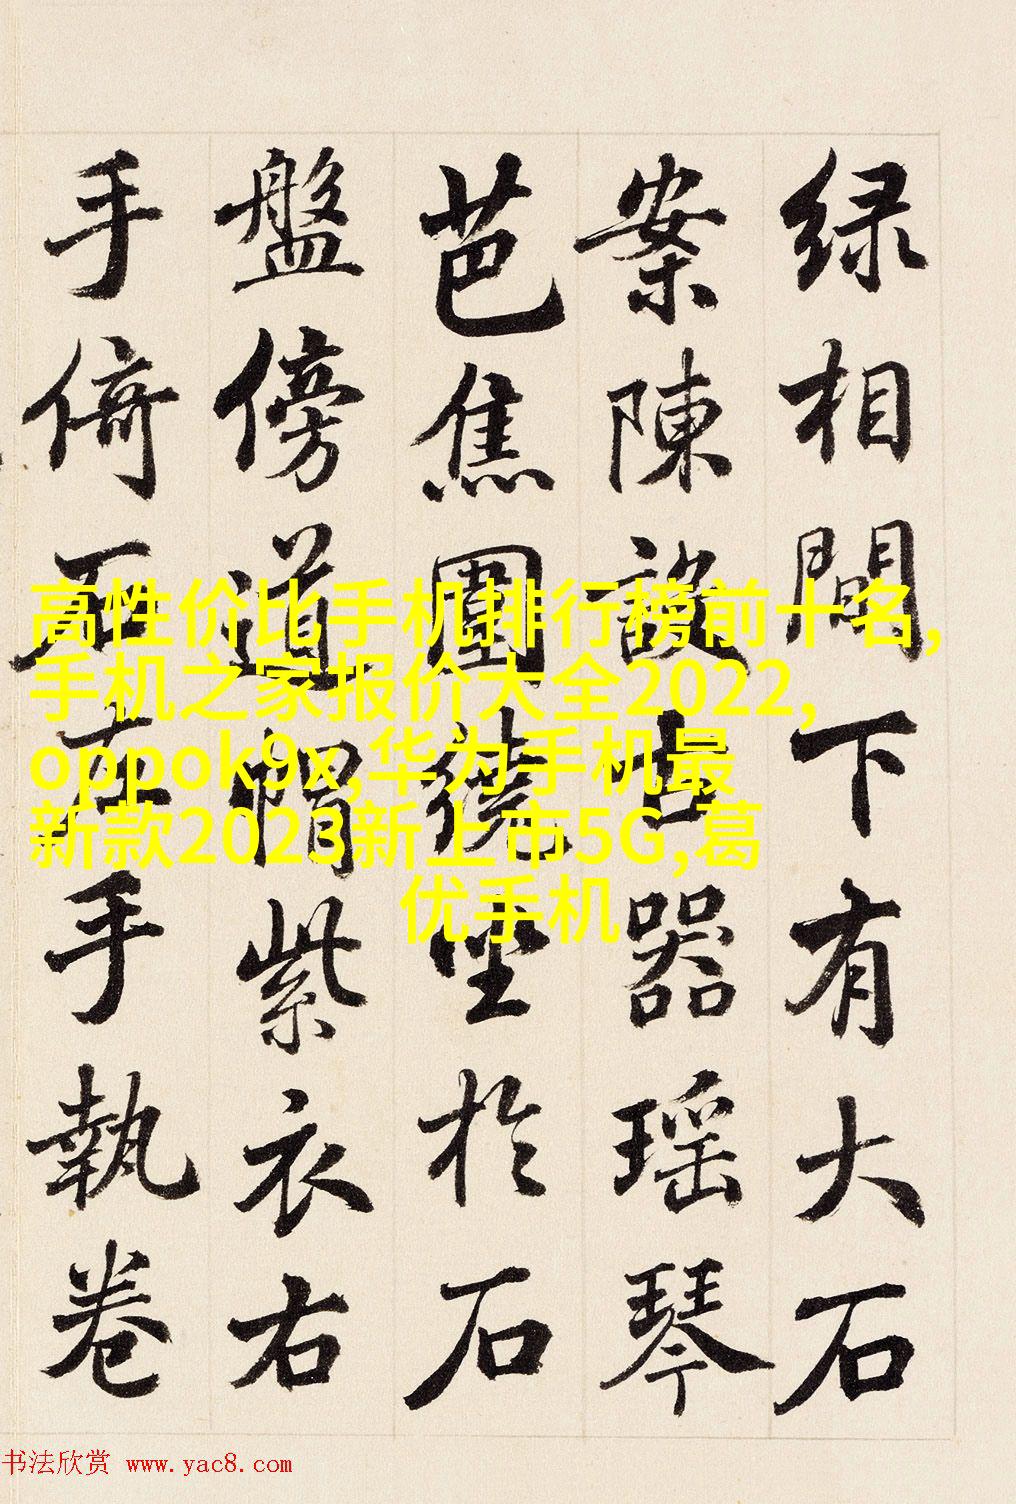 绿相間下有大石
案陳設古器瑶琴
芭焦圍繞坐於石
盤傍道帽紫衣右
手倚石左手執卷
高性价比手机排行榜前十名,
手机之家报价大全2022,
oppok9x,华为手机最
新款2023新上市5G,葛
优手机
书法欣赏 www.yac8.com